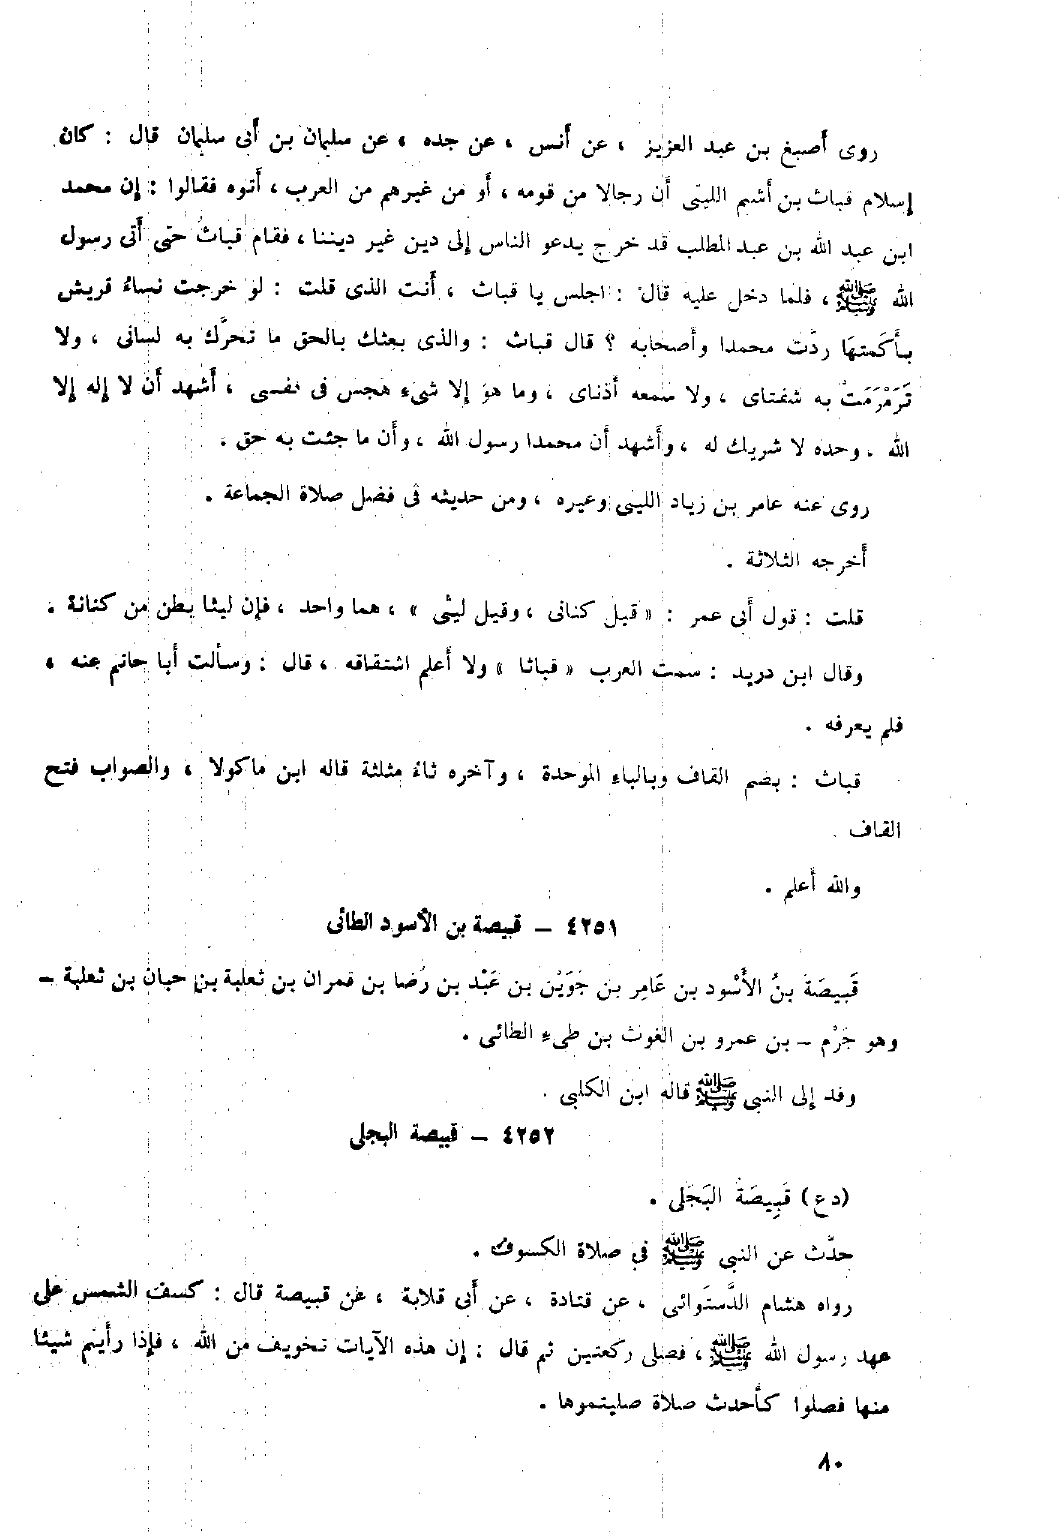 روى أصبغ بن عبد العزيز ، عن أنس ، عن جده ، عن سليمان بن أبى سليمان قال : كان
إسلام قباث بن أشيم الليثى أن رجالا من قومه ، أو من غيرهم من العرب ، أتوه فقالوا : إن محمد
ابن عبد الله بن عبد المطلب قد خرج يدعو الناس إلى دين غير ديننا ، فقام قباثُ حتى أتى رسول
الله ﷺ ، فلما دخل عليه قال : اجلس يا قباث ، أنت الذى قلت : لو خرجت نساءُ قريش
بأَكمتهَا ردَّت محمدا وأصحابه ؟ قال قباث : والذى بعثك بالحق ما تحرَّك به لسانى ، ولا
تَرَمْرَمَتْ به شفتاى ، ولا سمعه أذناى ، وما هو إلا شىء هجس فى نفسى ، أشهد أن لا إله إلا
الله ، وحده لا شريك له ، وأشهد أن محمدا رسول الله ، وأن ما جئت به حق .
روى عنه عامر بن زياد الليثى وغيره ، ومن حديثه فى فضل صلاة الجماعة .
أخرجه الثلاثة .
قلت : قول أبى عمر : « قيل كنانى ، وقيل ليثى » ، هما واحد ، فإن ليثا بطن من كنانة .
وقال ابن دريد : سمت العرب « قباثا » ولا أعلم اشتقاقه ، قال : وسألت أبا حاتم عنه ،
فلم يعرفه .
قباث : بضم القاف وبالباء الموحدة ، وآخره ثاءٌ مثلثة قاله ابن ماكولا ، والصواب فتح
القاف .
والله أعلم .
٤٢٥١ – قبيصة بن الأسود الطائى
قَبِيصَة بنُ الأَسْود بن عَامِر بن جُوَيْن بن عَبْد بن رُضَا بن قمران بن ثعلبة بن حيان بن ثعلبة –
وهو جَرْم – بن عمرو بن الغوث بن طىء الطائى .
وفد إلى النبى ﷺ قاله ابن الكلبى .
٤٢٥٢ – قبيصة البجلى
(دع) قَبِيصَةَ البَجَلى .
حدَّث عن النبى ﷺ فى صلاة الكسوف .
رواه هشام الدَّستَوائى ، عن قتادة ، عن أبى قلابة ، عن قبيصة قال : كسفت الشمس على
عهد رسول الله ﷺ ، فصلى ركعتين ثم قال : إن هذه الآيات تخويف من الله ، فإذا رأيتم شيئا
منها فصلوا كأحدث صلاة صليتموها .
٨٠